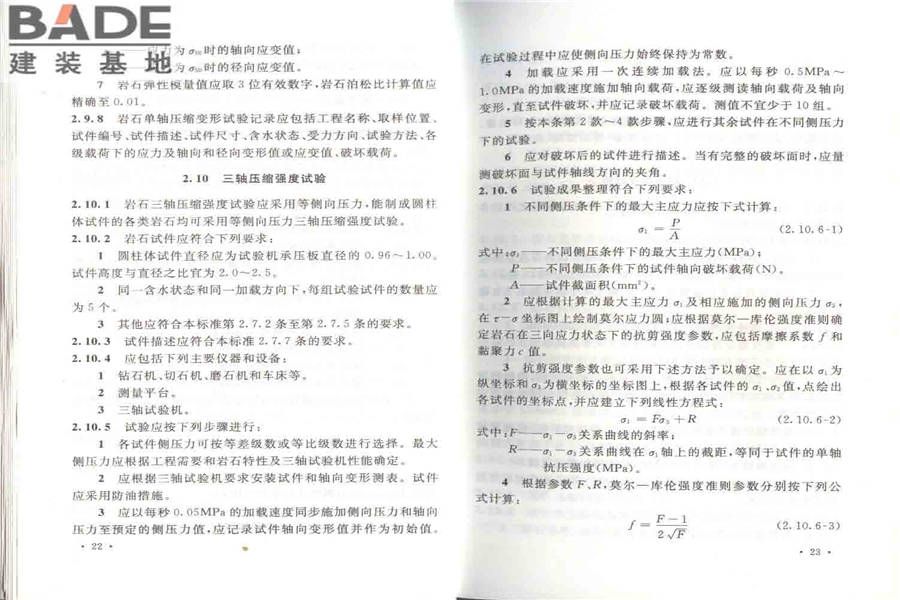 BADE
建装基地
为 σ₅₀ 时的轴向应变值；
为 σ₅₀ 时的径向应变值。
7 岩石弹性模量值应取 3 位有效数字，岩石泊松比计算值应
精确至 0.01。
2.9.8 岩石单轴压缩变形试验记录应包括工程名称、取样位置、
试件编号、试件描述、试件尺寸、含水状态、受力方向、试验方法、各
级载荷下的应力及轴向和径向变形值或应变值、破坏载荷。
2.10 三轴压缩强度试验
2.10.1 岩石三轴压缩强度试验应采用等侧向压力，能制成圆柱
体试件的各类岩石均可采用等侧向压力三轴压缩强度试验。
2.10.2 岩石试件应符合下列要求：
1 圆柱体试件直径应为试验机承压板直径的 0.96～1.00。
试件高度与直径之比宜为 2.0～2.5。
2 同一含水状态和同一加载方向下，每组试验试件的数量应
为 5 个。
3 其他应符合本标准第 2.7.2 条至第 2.7.5 条的要求。
2.10.3 试件描述应符合本标准 2.7.7 条的要求。
2.10.4 应包括下列主要仪器和设备：
1 钻石机、切石机、磨石机和车床等。
2 测量平台。
3 三轴试验机。
2.10.5 试验应按下列步骤进行：
1 各试件侧压力可按等差级数或等比级数进行选择。最大
侧压力应根据工程需要和岩石特性及三轴试验机性能确定。
2 应根据三轴试验机要求安装试件和轴向变形测表。试件
应采用防油措施。
3 应以每秒 0.05MPa 的加载速度同步施加侧向压力和轴向
压力至预定的侧压力值，应记录试件轴向变形值并作为初始值。
· 22 ·
在试验过程中应使侧向压力始终保持为常数。
4 加载应采用一次连续加载法。应以每秒 0.5MPa～
1.0MPa 的加载速度施加轴向载荷，应逐级测读轴向载荷及轴向
变形，直至试件破坏，并应记录破坏载荷。测值不宜少于 10 组。
5 按本条第 2 款～4 款步骤，应进行其余试件在不同侧压力
下的试验。
6 应对破坏后的试件进行描述。当有完整的破坏面时，应量
测破坏面与试件轴线方向的夹角。
2.10.6 试验成果整理符合下列要求：
1 不同侧压条件下的最大主应力应按下式计算：
σ₁ = P/A (2.10.6-1)
式中：σ₁——不同侧压条件下的最大主应力(MPa)；
P——不同侧压条件下的试件轴向破坏载荷(N)。
A——试件截面积(mm²)。
2 应根据计算的最大主应力 σ₁ 及相应施加的侧向压力 σ₃，
在 τ—σ 坐标图上绘制莫尔应力圆；应根据莫尔—库伦强度准则确
定岩石在三向应力状态下的抗剪强度参数，应包括摩擦系数 f 和
黏聚力 c 值。
3 抗剪强度参数也可采用下述方法予以确定。应在以 σ₁ 为
纵坐标和 σ₃ 为横坐标的坐标图上，根据各试件的 σ₁、σ₃ 值，点绘出
各试件的坐标点，并应建立下列线性方程式：
σ₁ = Fσ₃ + R (2.10.6-2)
式中：F——σ₁—σ₃ 关系曲线的斜率；
R——σ₁—σ₃ 关系曲线在 σ₁ 轴上的截距，等同于试件的单轴
抗压强度(MPa)。
4 根据参数 F、R，莫尔—库伦强度准则参数分别按下列公
式计算：
f = (F−1)/(2√F) (2.10.6-3)
· 23 ·